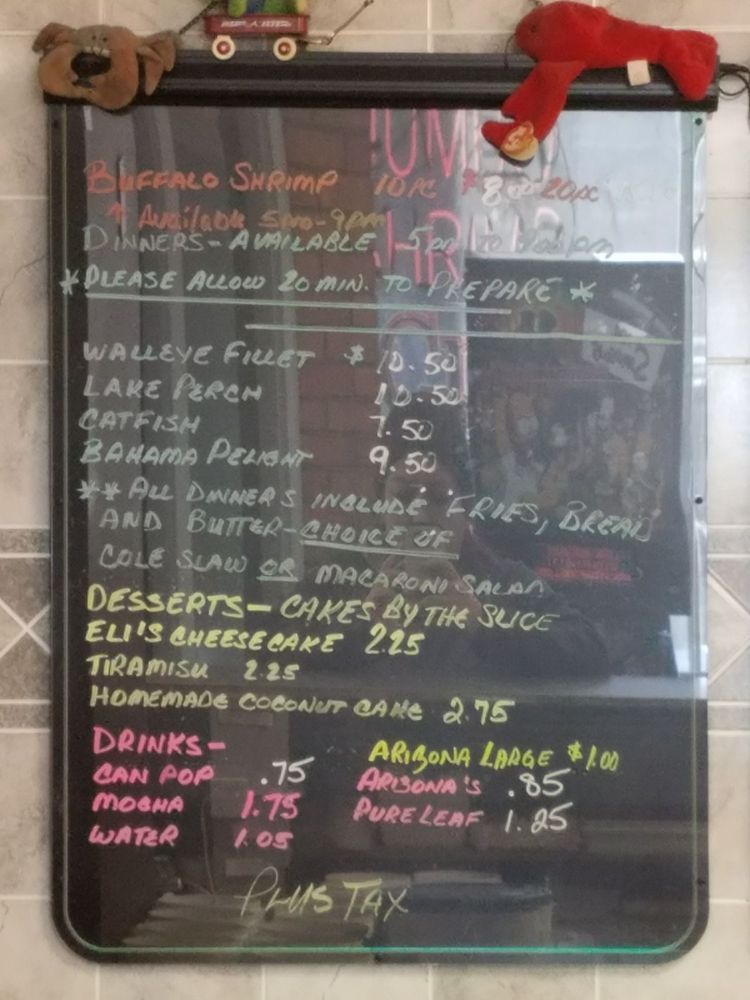 BUFFALO SHRIMP 10PC $8.00 20PC
↑ AVAILABLE 5PM-9PM
DINNERS- AVAILABLE 5PM TO PM
*PLEASE ALLOW 20 MIN. TO PREPARE *
WALLEYE FILLET $ 10.50
LAKE PERCH 10.50
CATFISH 7.50
BAHAMA DELIGHT 9.50
** ALL DINNERS INCLUDE FRIES, BREAD
AND BUTTER-CHOICE OF
COLE SLAW OR MACARONI SALAD
DESSERTS- CAKES BY THE SLICE
ELI'S CHEESECAKE 2.25
TIRAMISU 2.25
HOMEMADE COCONUT CAKE 2.75
DRINKS-
CAN POP .75
MOCHA 1.75
WATER 1.05
ARIZONA LARGE $1.00
ARISONA'S .85
PURE LEAF 1.25
PLUS TAX